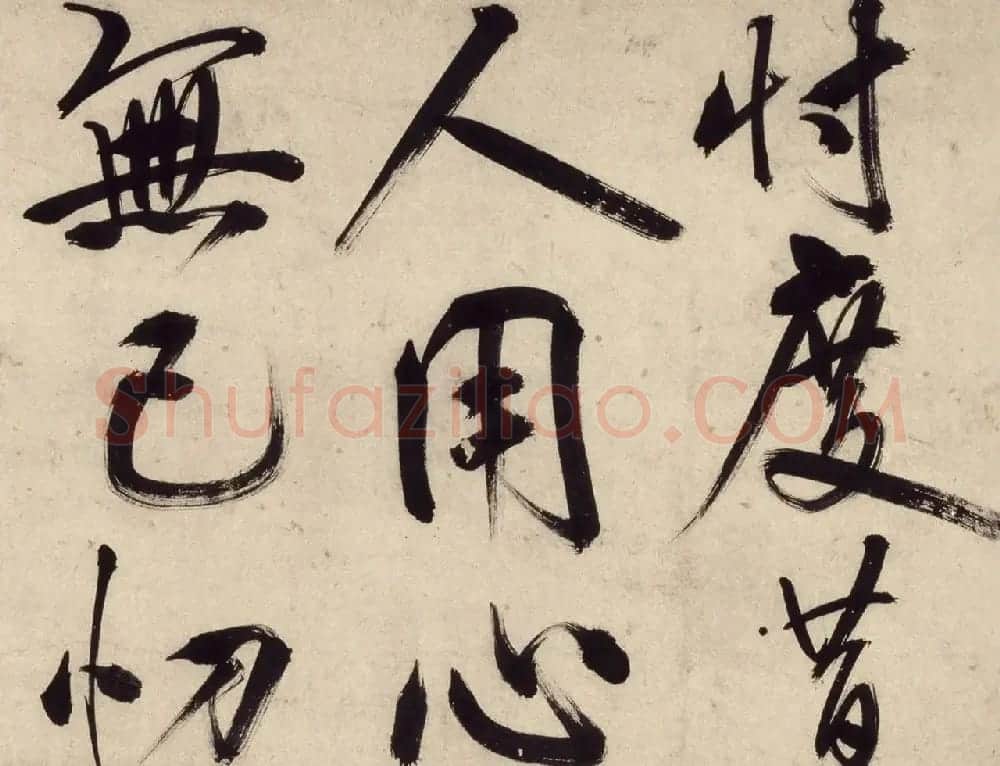 忖度昔
人用心
無己忉
Shufaziliao.COM